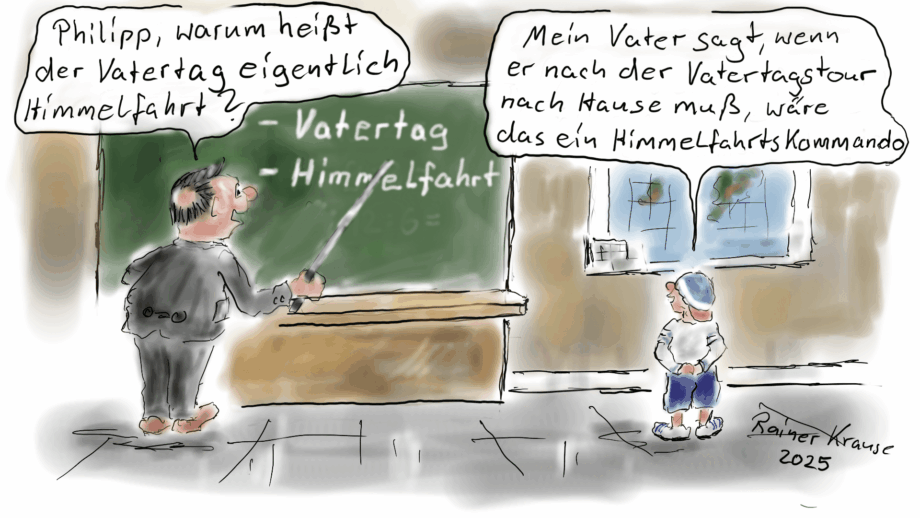 Philipp, warum heißt
der Vatertag eigentlich
Himmelfahrt?
Mein Vater sagt, wenn
er nach der Vatertagstour
nach Hause muß, wäre
das ein HimmelfahrtsKommando
- Vatertag
- Himmelfahrt
Rainer Krause
2025